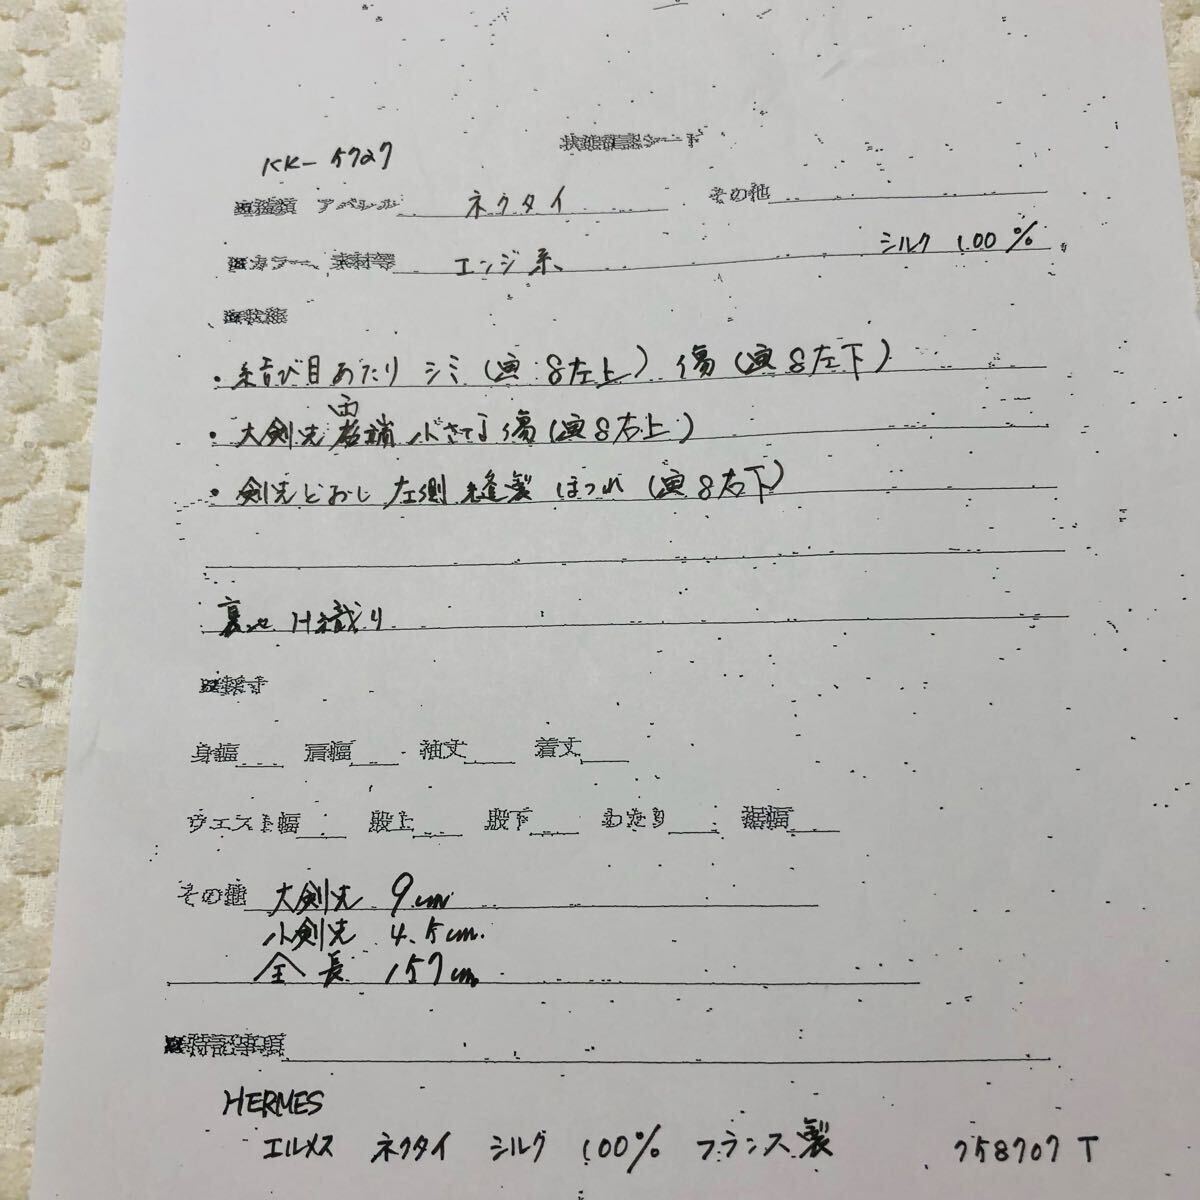 状態確認シート
KK-5727
■種類 アパレル ネクタイ その他
■カラー、素材等 エンジ系 シルク 100%
■状態
・結び目あたり シミ(画:8左上) 傷(画8左下)
・大剣先 両端 小さな傷(画8右上)
・剣先とおし 左側 縫製 ほつれ (画8右下)
裏地 H織り
■採寸
身幅 肩幅 袖丈 着丈
ウエスト幅 股上 股下 わたり 裾幅
その他 大剣先 9cm
小剣先 4.5cm.
全長 157cm
■特記事項
HERMES
エルメス ネクタイ シルク 100% フランス製 758707 T